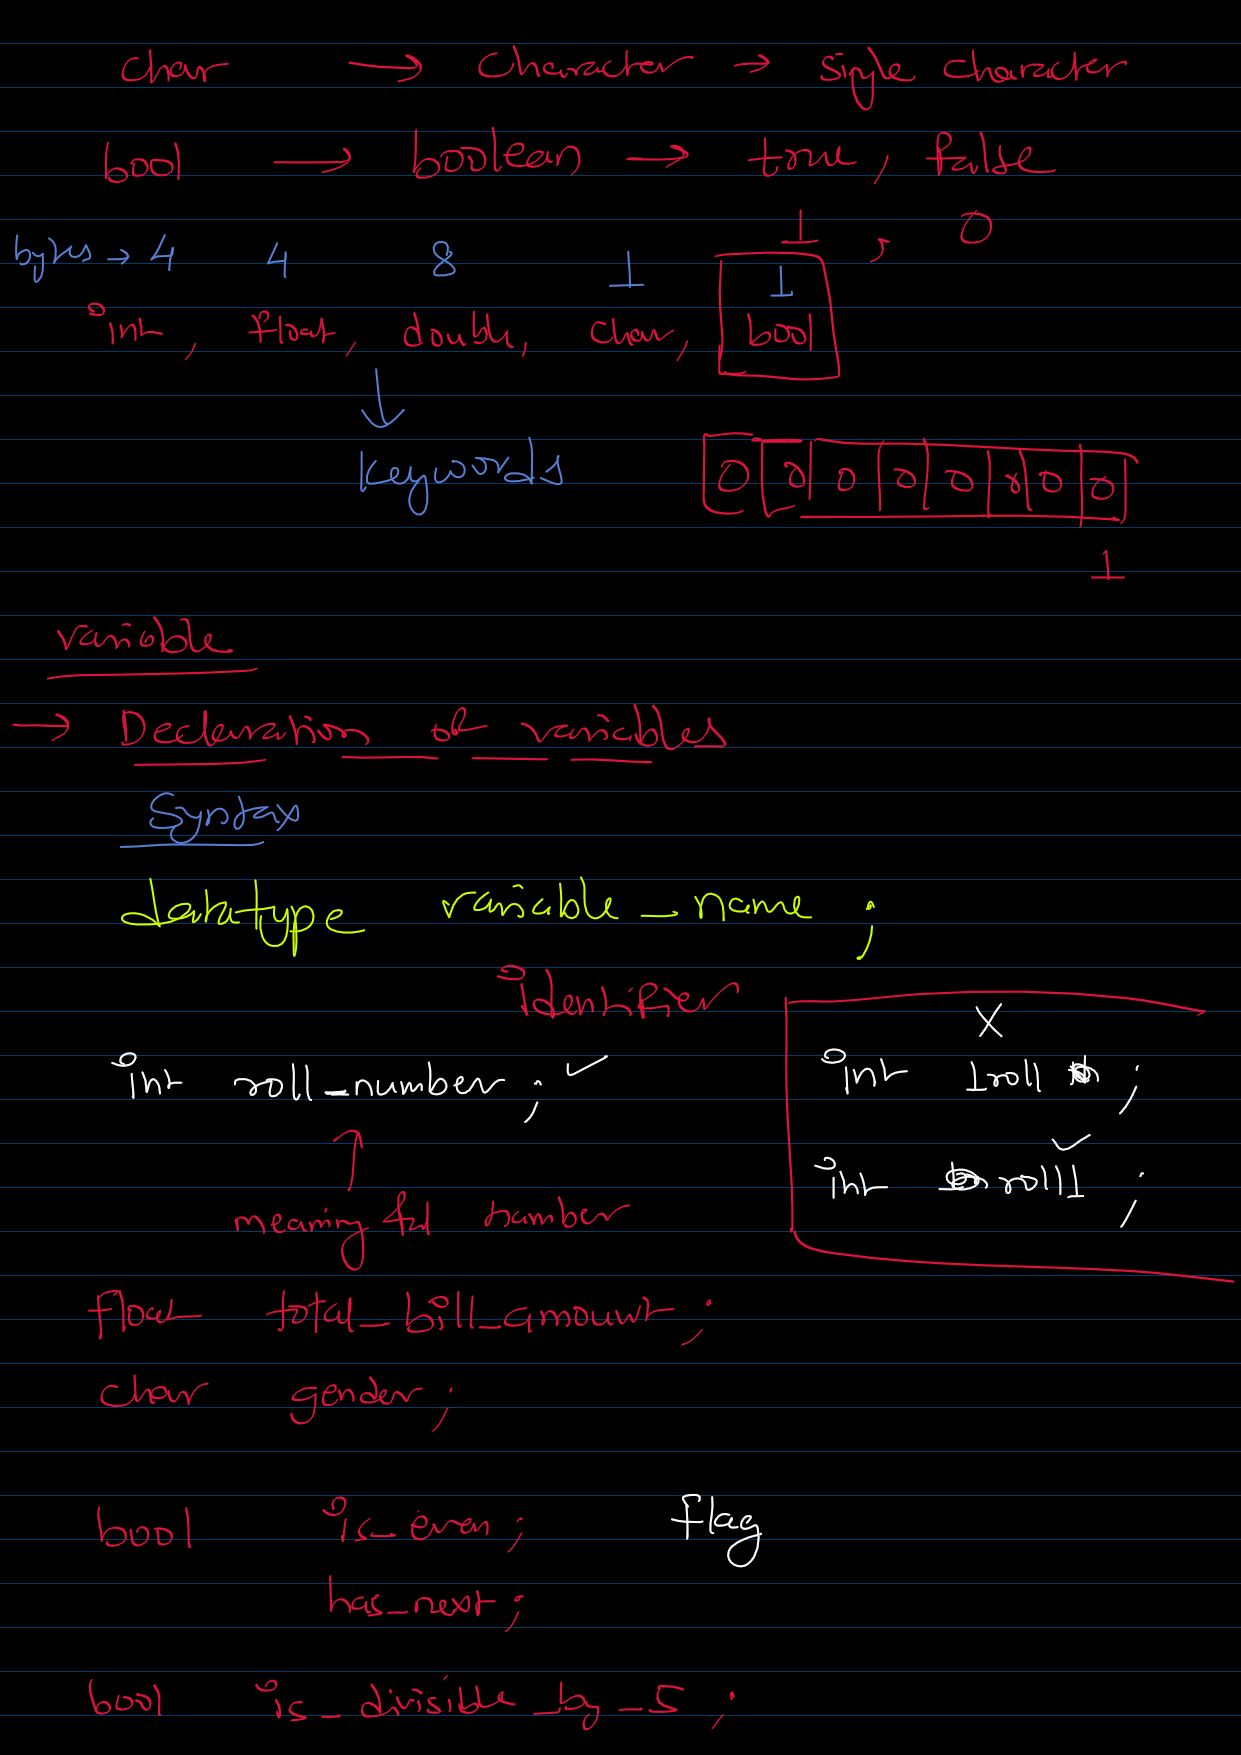 char → character → single character
bool → boolean → true, false
1 , 0
bytes → 4 4 8 1 1
int, float, double, char, bool
↓
keywords
0 0 0 0 0 0 0 0
1
variable
→ Declaration of variables
Syntax
datatype variable_name ;
identifier
int roll_number ; ✓
↑
meaningful number
X
int 1roll ;
✓
int roll1 ;
float total_bill_amount ;
char gender ;
bool is_even ; flag
has_next ;
bool is_divisible_by_5 ;